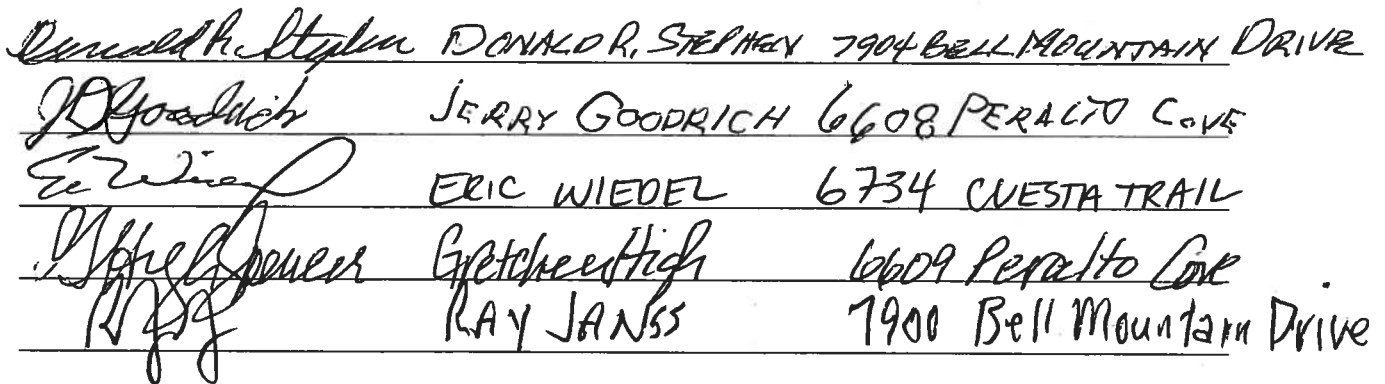 Donald R. Stephen DONALD R. STEPHEN 7904 BELL MOUNTAIN DRIVE
JD Goodrich JERRY GOODRICH 6608 PERALTO COVE
ERIC WIEDEL 6734 CUESTA TRAIL
Spencer Gretchen High 6609 Peralto Cove
RAY JANSS 7900 Bell Mountain Drive